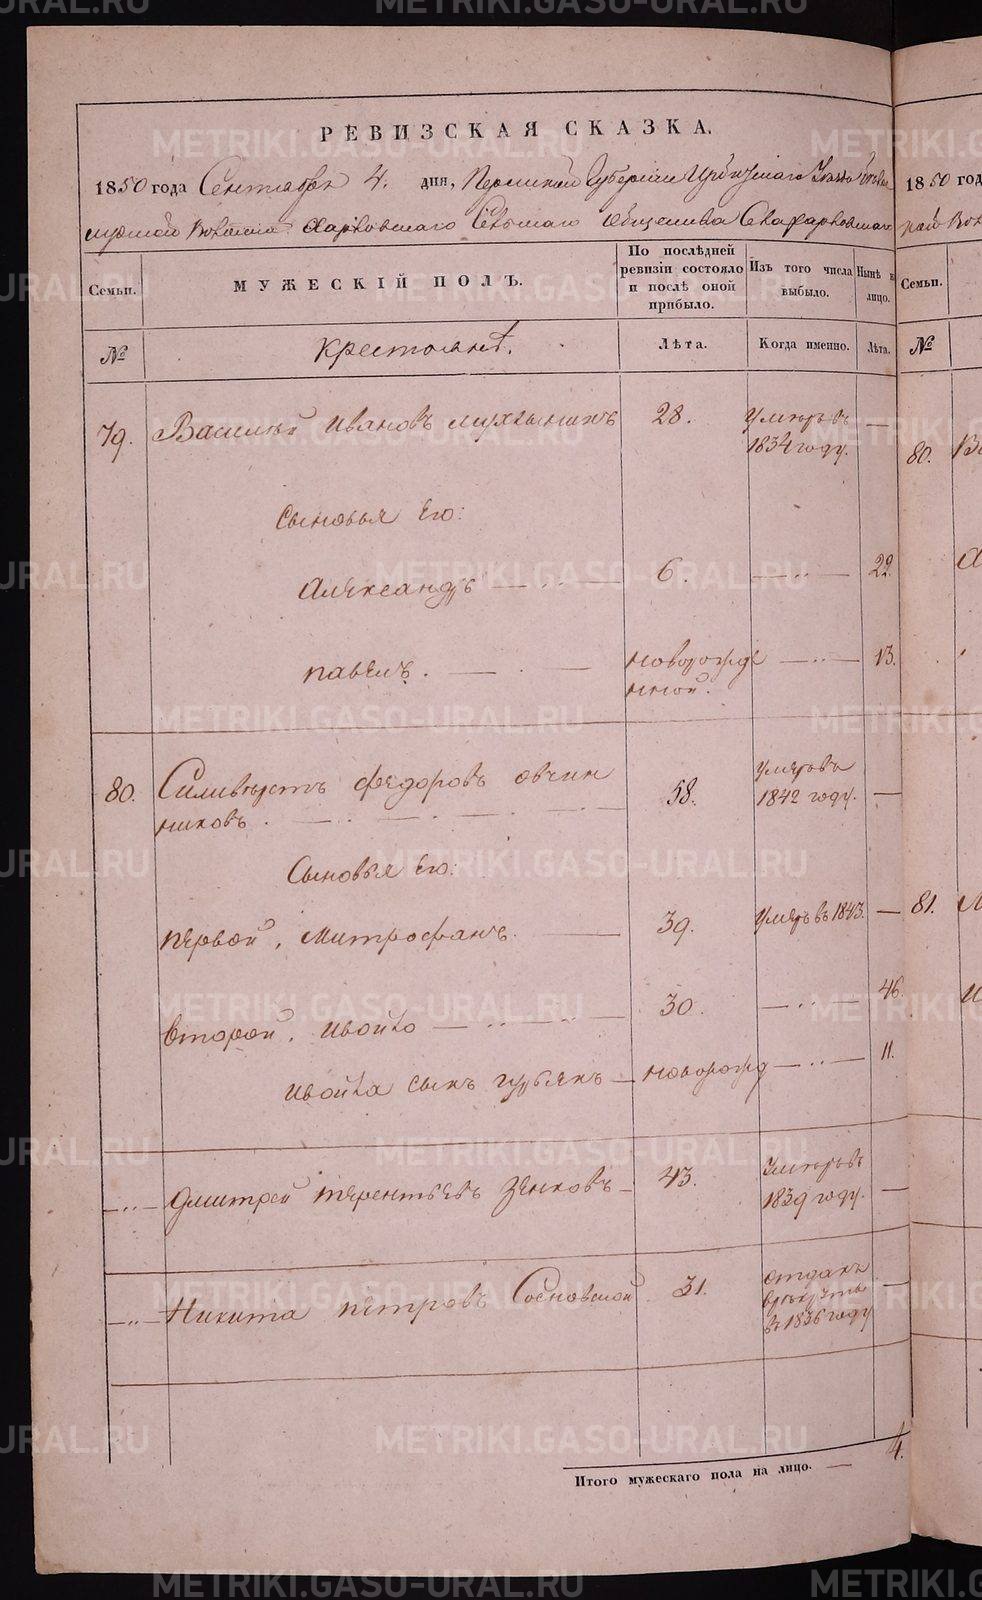 РЕВИЗСКАЯ СКАЗКА.
1850 года Сентября 4. дня, Пермской Губернии Ирбитскаго Уезда
волости Харловскаго Сельскаго общества Села Харловскаго
Семьи.
МУЖЕСКІЙ ПОЛЪ.
По послѣдней ревизіи состояло и послѣ оной прибыло.
Изъ того числа выбыло.
Нынѣ на лицо.
№
Крестьянѣ.
Лѣта.
Когда именно.
Лѣта.
79. Василий Ивановъ 28. Умеръ въ 1834 году. —
Сыновья Его:
Александръ 6. — 22
Павелъ. новорожденной. — 13.
80. Силивестъ Федоровъ Овчинниковъ. 58. Умеръ въ 1842 году. —
Сыновья Его:
Первой, Митрофанъ. 39. Умеръ въ 1843. —
Второй, Ивойло 30. — 46.
сынъ новорожд — 11.
—..— Дмитрей Терентьевъ Зенковъ 43. Умеръ въ 1839 году. —
—..— Никита Петровъ Сосновской 31. отданъ в рекруты въ 1836 году —
Итого мужескаго пола на лицо. — 4.
1850 год
Семьи.
№
80.
81.
METRIKI.GASO-URAL.RU